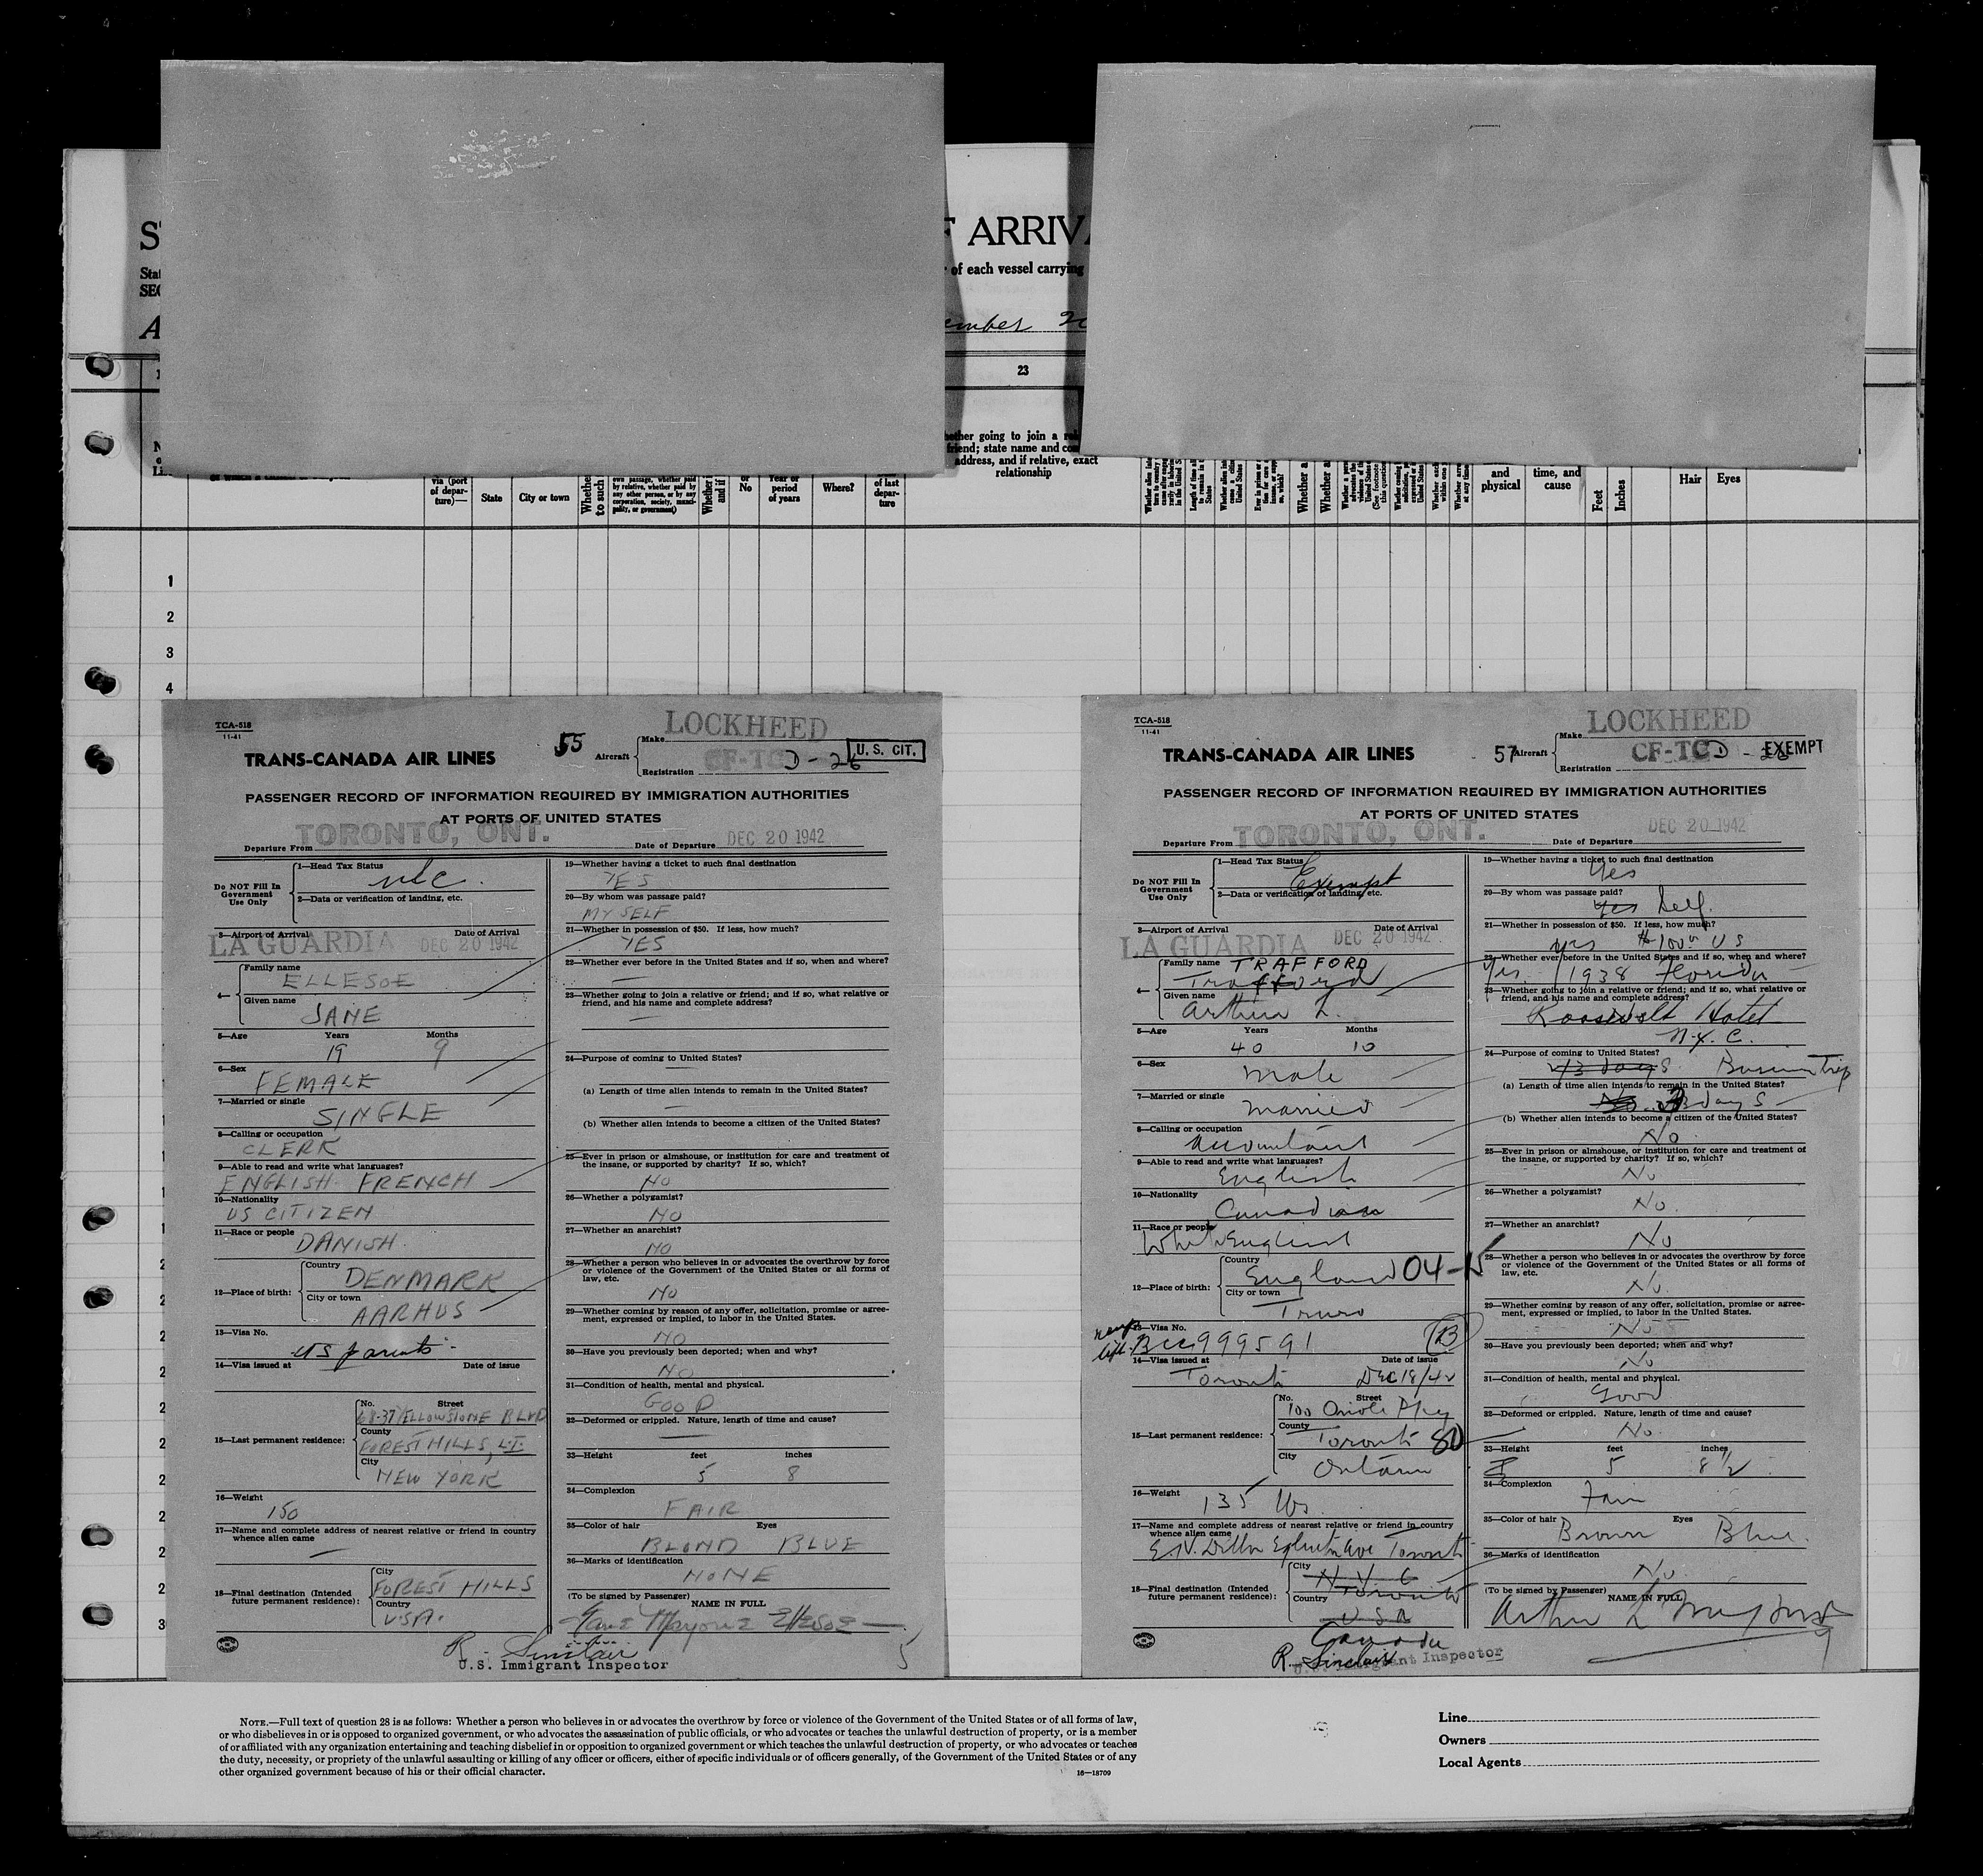 S
F ARRIVA
Stat
of each vessel carrying
SEC
A
ember 20
23
hether going to join a rel
friend; state name and com
address, and if relative, exact
relationship
via (port
of depar-
ture)—
State
City or town
Whether
to such
own passage, whether paid
by relative, whether paid by
any other person, or by any
corporation, society, munici-
pality, or government)
Whether
and if
or
No
Year or
period
of years
Where?
of last
depar-
ture
and
physical
time, and
cause
Feet
Inches
Hair
Eyes
1
2
3
4
TCA-518
11-41
LOCKHEED
TRANS-CANADA AIR LINES
55
Aircraft
Make
Registration
CF-TC D-26
U. S. CIT.
PASSENGER RECORD OF INFORMATION REQUIRED BY IMMIGRATION AUTHORITIES
AT PORTS OF UNITED STATES
Departure From TORONTO, ONT.
Date of Departure DEC 20 1942
Do NOT Fill In
Government
Use Only
1—Head Tax Status
2—Data or verification of landing, etc.
3—Airport of Arrival Date of Arrival
LA GUARDIA DEC 20 1942
4— Family name
ELLESOE
Given name
JANE
5—Age Years Months
19 9
6—Sex
FEMALE
7—Married or single
SINGLE
8—Calling or occupation
CLERK
9—Able to read and write what languages?
ENGLISH FRENCH
10—Nationality
US CITIZEN
11—Race or people
DANISH
12—Place of birth:
Country
DENMARK
City or town
AARHUS
13—Visa No.
US parents
14—Visa issued at Date of issue
15—Last permanent residence:
No. Street
68-37 YELLOWSTONE BLVD
County
FOREST HILLS, L.I.
City
NEW YORK
16—Weight
150
17—Name and complete address of nearest relative or friend in country
whence alien came
—
18—Final destination (Intended
future permanent residence):
City
FOREST HILLS
Country
USA.
19—Whether having a ticket to such final destination
YES
20—By whom was passage paid?
MYSELF
21—Whether in possession of $50. If less, how much?
YES
22—Whether ever before in the United States and if so, when and where?
—
23—Whether going to join a relative or friend; and if so, what relative or
friend, and his name and complete address?
—
24—Purpose of coming to United States?
—
(a) Length of time alien intends to remain in the United States?
—
(b) Whether alien intends to become a citizen of the United States?
25—Ever in prison or almshouse, or institution for care and treatment of
the insane, or supported by charity? If so, which?
NO
26—Whether a polygamist?
NO
27—Whether an anarchist?
NO
28—Whether a person who believes in or advocates the overthrow by force
or violence of the Government of the United States or all forms of
law, etc.
NO
29—Whether coming by reason of any offer, solicitation, promise or agree-
ment, expressed or implied, to labor in the United States.
NO
30—Have you previously been deported; when and why?
NO
31—Condition of health, mental and physical.
GOOD
32—Deformed or crippled. Nature, length of time and cause?
—
33—Height feet inches
5 8
34—Complexion
FAIR
35—Color of hair Eyes
BLOND BLUE
36—Marks of identification
NONE
(To be signed by Passenger) NAME IN FULL
Jane Marjorie Ellesoe
R. Sinclair
U.S. Immigrant Inspector
5
TCA-518
11-41
LOCKHEED
TRANS-CANADA AIR LINES
57
Aircraft
Make
Registration
CF-TC D-26
EXEMPT
PASSENGER RECORD OF INFORMATION REQUIRED BY IMMIGRATION AUTHORITIES
AT PORTS OF UNITED STATES
Departure From TORONTO, ONT.
Date of Departure DEC 20 1942
Do NOT Fill In
Government
Use Only
1—Head Tax Status
Exempt
2—Data or verification of landing, etc.
3—Airport of Arrival Date of Arrival
LA GUARDIA DEC 20 1942
4— Family name TRAFFORD
Trafford
Given name
Arthur L.
5—Age Years Months
40 10
6—Sex
male
7—Married or single
married
8—Calling or occupation
Accountant
9—Able to read and write what languages?
English
10—Nationality
Canadian
11—Race or people
White English
12—Place of birth:
Country
England 04-15
City or town
Truro
13—Visa No.
BCC 999591 (B)
14—Visa issued at Date of issue
Toronto Dec 18/42
15—Last permanent residence:
No. Street
100 Oriole Pkwy
County
Toronto 80
City
Ontario
16—Weight
135 lbs
17—Name and complete address of nearest relative or friend in country
whence alien came
E.N. Dillon Eglinton Ave Toronto
18—Final destination (Intended
future permanent residence):
City
N Y C
Toronto
Country
U S A
Canada
19—Whether having a ticket to such final destination
Yes
20—By whom was passage paid?
yes Self.
21—Whether in possession of $50. If less, how much?
yes $100 U S
22—Whether ever before in the United States and if so, when and where?
Yes 1938 Florida
23—Whether going to join a relative or friend; and if so, what relative or
friend, and his name and complete address?
Roosevelt Hotel
N.Y.C.
24—Purpose of coming to United States?
3 days Business Trip
(a) Length of time alien intends to remain in the United States?
No 3 days
(b) Whether alien intends to become a citizen of the United States?
No
25—Ever in prison or almshouse, or institution for care and treatment of
the insane, or supported by charity? If so, which?
No
26—Whether a polygamist?
No.
27—Whether an anarchist?
No
28—Whether a person who believes in or advocates the overthrow by force
or violence of the Government of the United States or all forms of
law, etc.
No.
29—Whether coming by reason of any offer, solicitation, promise or agree-
ment, expressed or implied, to labor in the United States.
No
30—Have you previously been deported; when and why?
No
31—Condition of health, mental and physical.
Good
32—Deformed or crippled. Nature, length of time and cause?
No.
33—Height feet inches
5 8 1/2
34—Complexion
Fair
35—Color of hair Eyes
Brown Blue.
36—Marks of identification
No.
(To be signed by Passenger) NAME IN FULL
Arthur L
R. Sinclair
U.S. Immigrant Inspector
9
NOTE.—Full text of question 28 is as follows: Whether a person who believes in or advocates the overthrow by force or violence of the Government of the United States or of all forms of law,
or who disbelieves in or is opposed to organized government, or who advocates the assassination of public officials, or who advocates or teaches the unlawful destruction of property, or is a member
of or affiliated with any organization entertaining and teaching disbelief in or opposition to organized government or which teaches the unlawful destruction of property, or who advocates or teaches
the duty, necessity, or propriety of the unlawful assaulting or killing of any officer or officers, either of specific individuals or of officers generally, of the Government of the United States or of any
other organized government because of his or their official character.
16—18709
Line
Owners
Local Agents